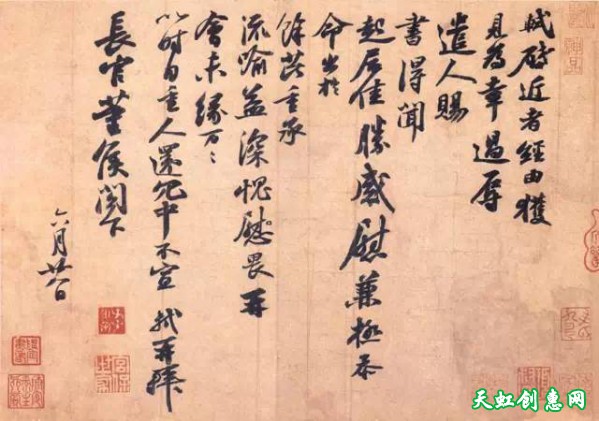 軾啓近者經由獲
見為幸過辱
遣人賜
書得聞
起居佳勝感慰兼極忝
命出於
餘芘重承
流喻益深愧畏再
會未緣万〻
以時自重人還冗中不宣 軾再拜
長官董侯閣下
六月廿八日
天虹创惠网